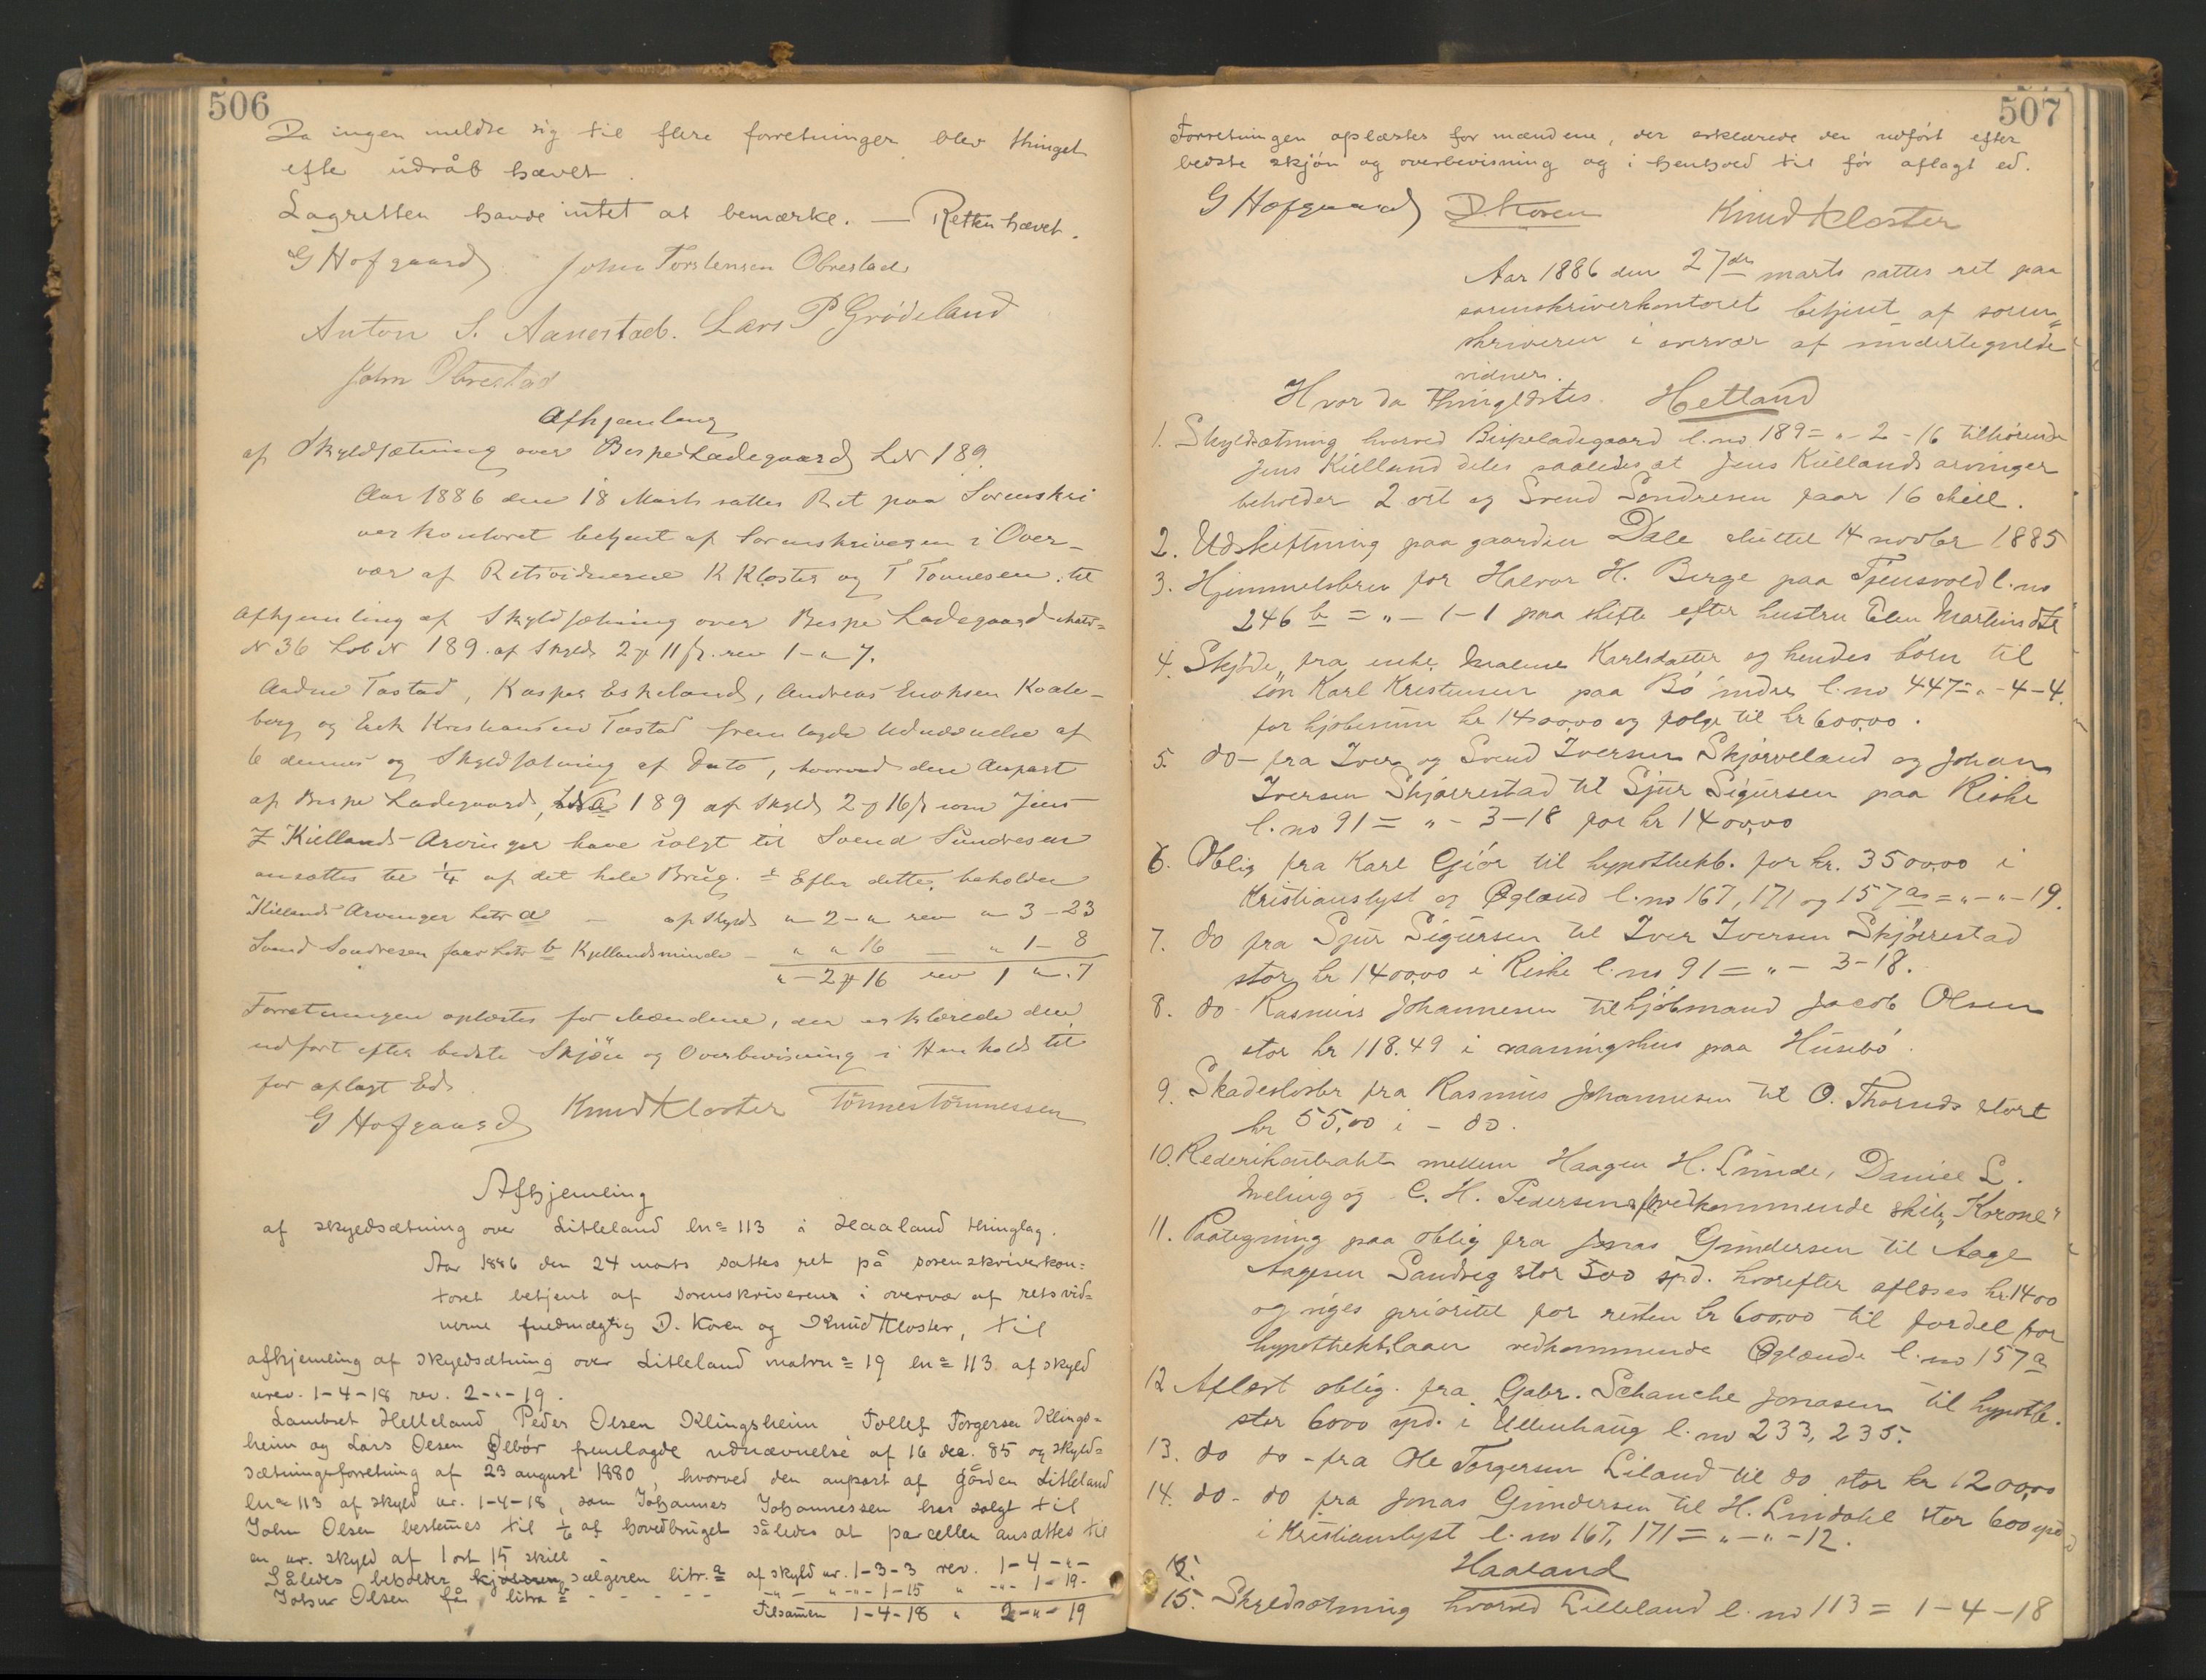 506
Da ingen meldte sig til flere forretninger blev thinget
efte udråb hævet.
Lagretten havde intet at bemærke. — Retten hævet.
G Hofgaard John Torstensen Obrestad
Anton S. Aanestad. Lars P Grödeland
John Obrestad
Afhjemling
af Skyldsætning over Bispe Ladegaard LN 189.
Aar 1886 den 18 Marts sattes Ret paa Sorenskri
verkontoret betjent af Sorenskriveren i Over-
vær af Retsvidnerne K Kloster og T Tønnesen til
Afhjemling af Skyldsætning over Bespe Ladegaard Matr=
N 36 Lob N 189. af Skyld 2 11 rev 1-"-7.
Aadne Tastad, Kasper Eskeland, Andreas Enoksen Koale-
berg og Erik Kristiansen Tastad fremlagde Udnævnelse af
6 dennes og Skyldsætning af Dato, hvorved den Anpart
af Bispe Ladegaard, 189 af Skyld 2 16 som Jens
Z Kiellands Arvinger have solgt til Svend Sundresen
ansattes til 1/4 af det hele Brug. = Efter dette beholder
Kiellands Arvinger Litr a — af Skyld "-2-" rev "-3-23
Svend Sondresen faar Litr b Kjellandsminde - " " 16 — " 1-8
"-2 16 rev 1 ".7
Forretningen oplæstes for Mændene, der erklærede den
udført efter bedste Skjøn og Overbevisning i Henhold til
før aflagt Ed.
G Hofgaard Knud Kloster Tönnes Tönnessen
Afhjemling
af skyldsætning over Litleland lno 113 i Haaland thinglag.
Aar 1886 den 24 marts sattes ret på sorenskriverkon=
toret betjent af sorenskriveren i overvær af retsvid=
nerne fuldmægtig D. Koren og Knud Kloster, til
afhjemling af skyldsætning over Litleland matrn= 19 ln= 113 af skyld
urev. 1-4-18 rev. 2-"-19.
Lambret Helleland Peder Olsen Klingsheim Tollef Torgersen Klings-
heim og Lars Olsen Ølbör fremlagde udnævnelse af 16 dec. 85 og skyld=
sætningsforretning af 23 august 1880, hvorved den anpart af gården Litleland
ln= 113 af skyld ur. 1-4-18, som Johannes Johannessen har solgt til
John Olsen bestemes til 1/6 af hovedbruget således at parcellen ansættes til
en ur. skyld af 1 ort 15 skill -
Således beholder kjøberen sælgeren litr. a af skyld ur. 1-3-3 rev. 1-4-"-
Johan Olsen få litra b - - - - - -"- " -"-1-15 " -"- 1-19-
Tilsamen 1-4-18 " 2-"-19
507
Forretningen oplæstes for mændene, der erklærede den udfört efter
bedste skjön og overbevisning og i henhold til för aflagt ed.
G Hofgaard D Koren Knud Kloster
Aar 1886 den 27de marts sattes ret paa
sorenskriverkontoret betjent af soren=
skriveren i overvær af undertegnede
vidner.
Hvor da thinglæstes. Hetland
1. Skyldsætning hvorved Bispeladegaard l.no 189 = "-2-16 tilhörende
Jens Kielland deles saaledes at Jens Kiellands arvinger
beholder 2 ort og Svend Sondresen faar 16 skill.
2. Udskiftning paa gaarden Dale sluttet 14 novbr 1885
3. Hjemmelsbrev for Halvor H. Berge paa Tjensvold l.no
246 b = "-1-1 paa skifte efter hustru Elen Martinsdtr
4. Skjöde fra enke Malene Karlsdatter og hendes börn til
sön Karl Kristensen paa Bö indre l.no 447 = "-4-4.
for kjöbesum kr 1400,00 og folge til kr 600,00.
5. do - fra Iver og Svend Iversen Skjörveland og Johan
Iversen Skjörrestad til Sjur Sigursen paa Riske
l.no 91 = "-3-18 for kr 1400,00
6. Oblig fra Karl Gjör til hypothekb. for kr. 3500,00 i
Kristianslyst og Øgland l.no 167, 171 og 157 a = "-"-19.
7. do fra Sjur Sigursen til Iver Iversen Skjörrestad
stor kr 1400,00 i Riske l.no 91 = "-3-18.
8. do - Rasmus Johannesen til kjöbmand Jacob Olsen
stor kr 118.49 i vaaningshus paa Husebö.
9. Skadeslösbr fra Rasmus Johannesen til O. Thorsnds stort
kr 55,00 i - do.
10. Rederikontrakt mellem Haagen H. Lunde, Daniel L.
Meling og C. H. Pedersen vedkommende skib "Krone"
11. Paategning paa oblig fra Jonas Gundersen til Aage
Aagesen Sandvig stor 500 spd. hvorefter aflæses kr. 1400
og viges prioritet for resten kr 600,00 til fordel for
hypotheklaan vedkommende Øglænde l.no 157 a
12 Aflæst oblig. fra Gabr. Schanche Jonasen til hypothb.
stor 6000 spd. i Ullenhaug l.no 233, 235.
13. do do - fra Ole Torgersen Liland til do stor kr 1200,00
14. do - do fra Jonas Gundersen til H. Lindahl stor 600 spd
i Kristianslyst l.no 167, 171 = "-"-12.
Haaland
15. Skyldsætning hvorved Litleland l.no 113 = 1-4-18